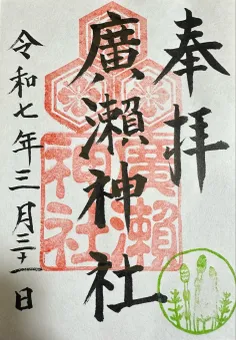 奉拝
廣瀬神社
廣瀬神社
令和七年三月三十一日